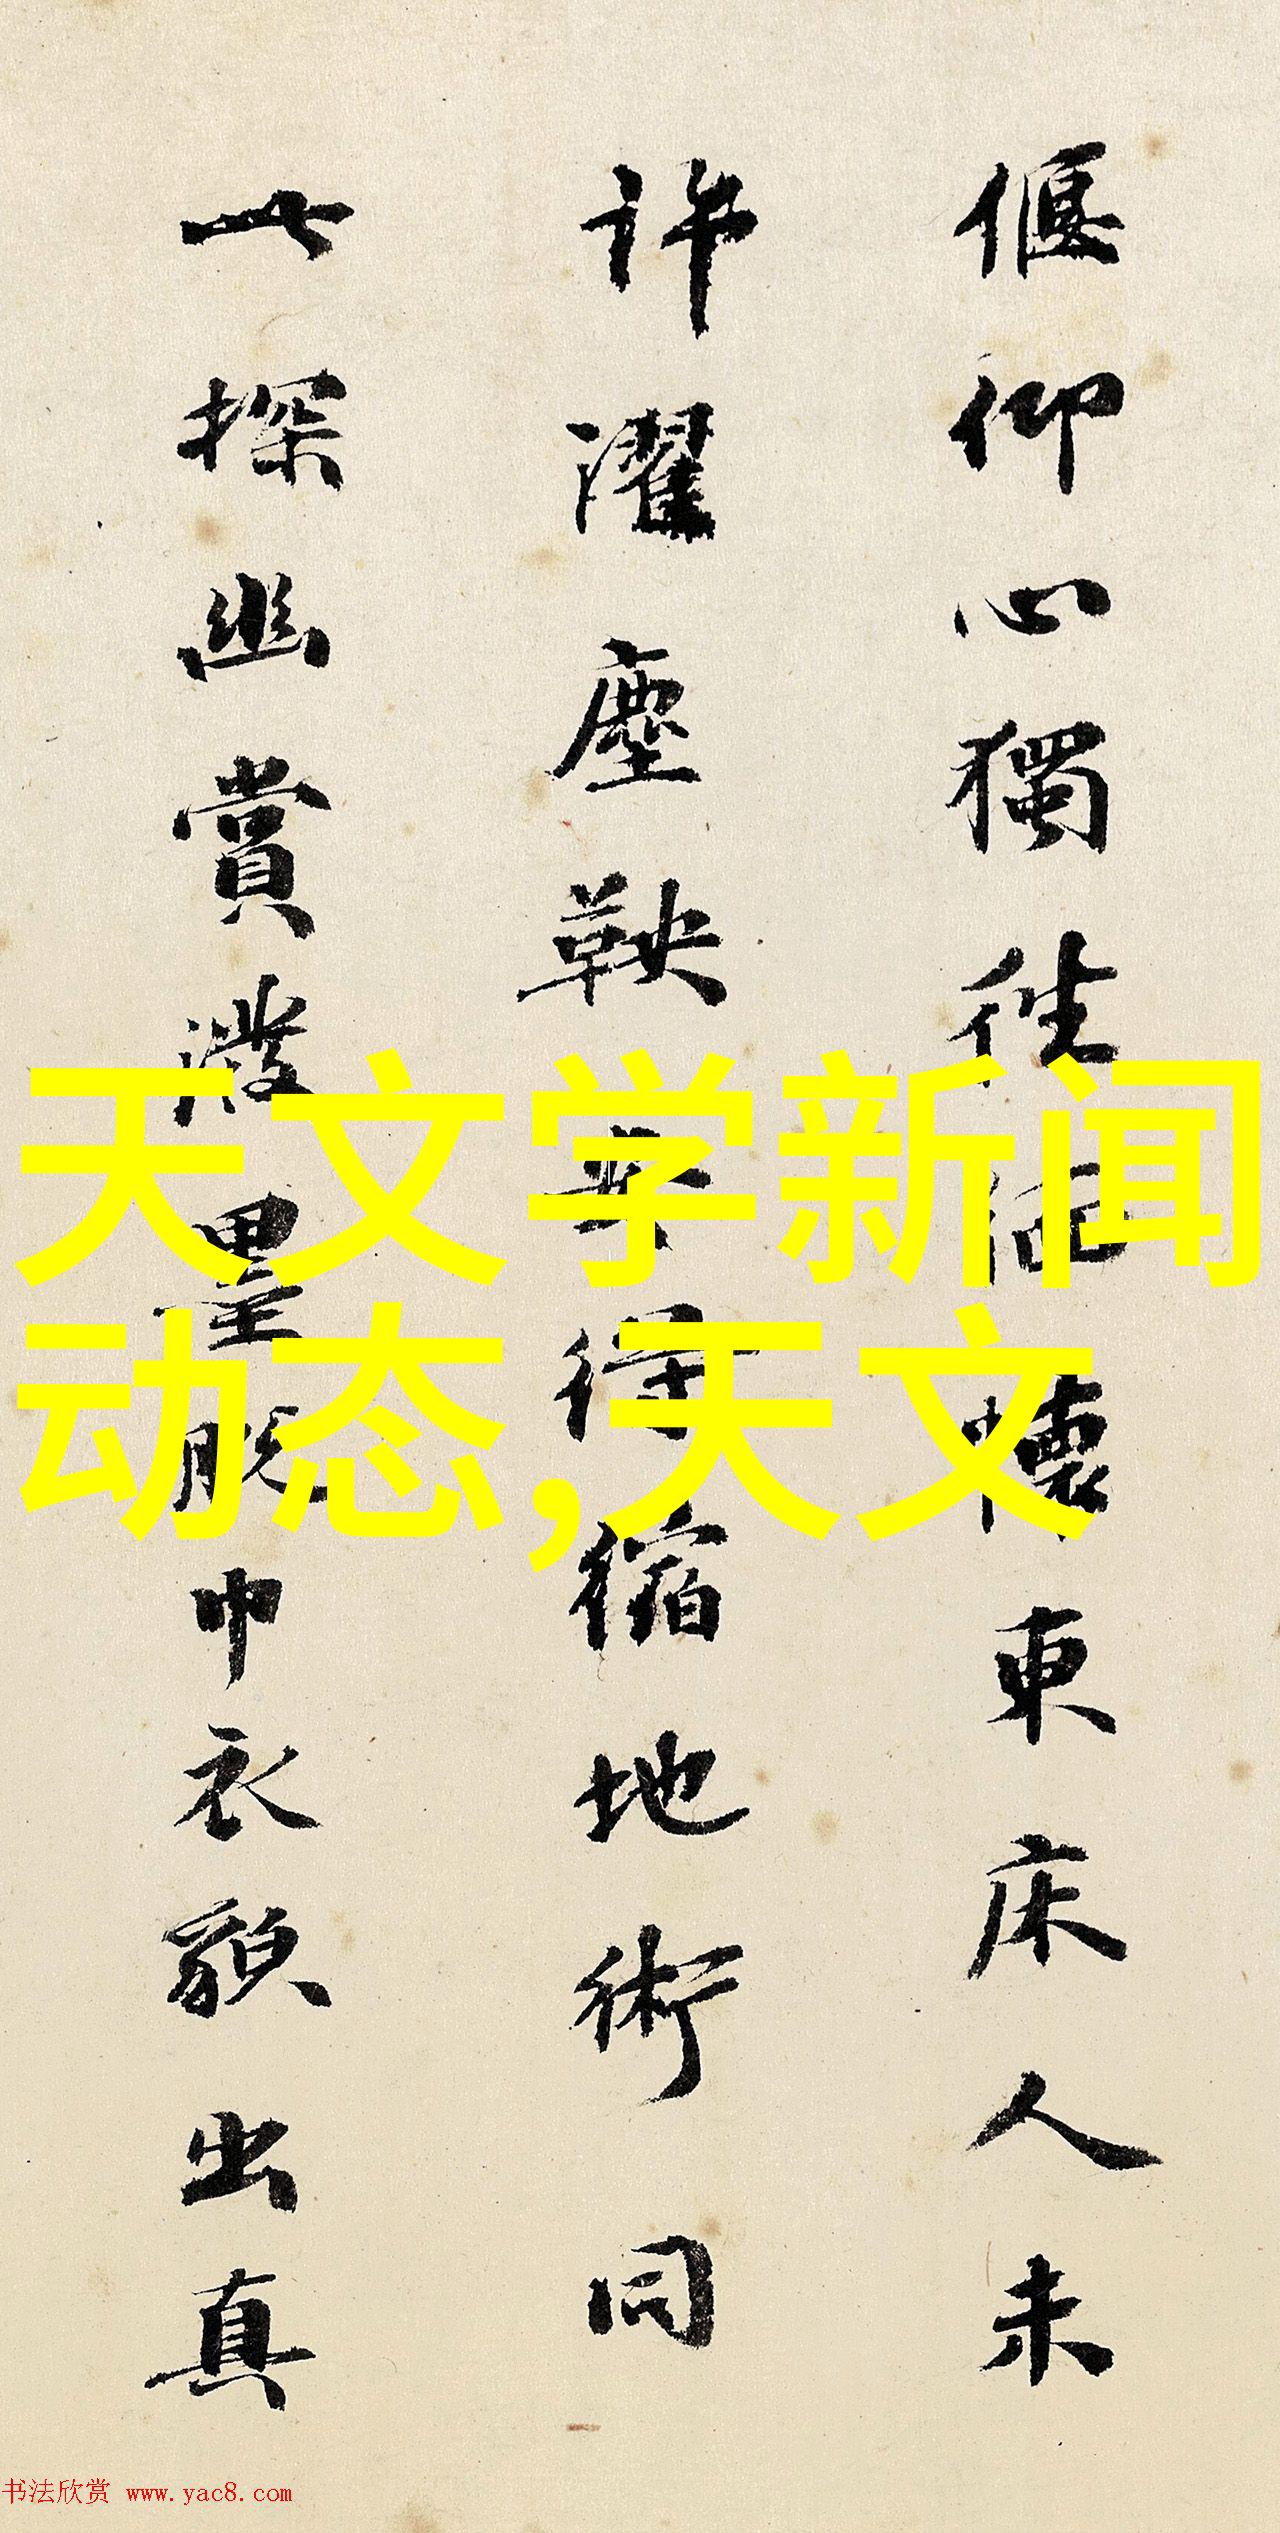 偃仰心獨往懷東床人未
許濯塵鞅安得縮地術同
探幽賞潑墨脫巾衣貌出真
天文学新闻
动态,天文
书法欣赏 www.yac8.com